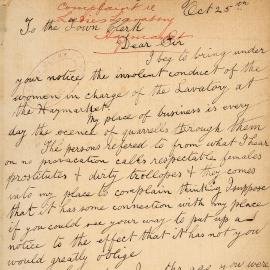 Complaint re
Ladies Lavatory
Haymarket
Oct 25th
To the Town Clerk
Dear Sir
I beg to bring under
your notice the insolent conduct of the
women in charge of the Lavatory at
the Haymarket.
My place of business is every
day the scence of quarrells through them
The persons refered to from what I hear
on no provacation calls respectable females
prostitutes & dirty trollopes & they comes
into my place to complain thinking I suppose
that it has some connection with my place
if you could see your way to put up a
notice to the effect that it has not you
would greatly oblige
ago you were